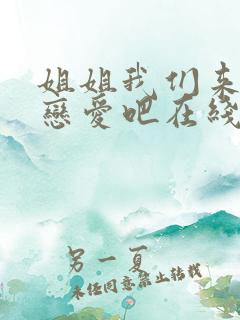 姐姐我们来
戀愛吧在綫
另一夏
未经同意禁止转载